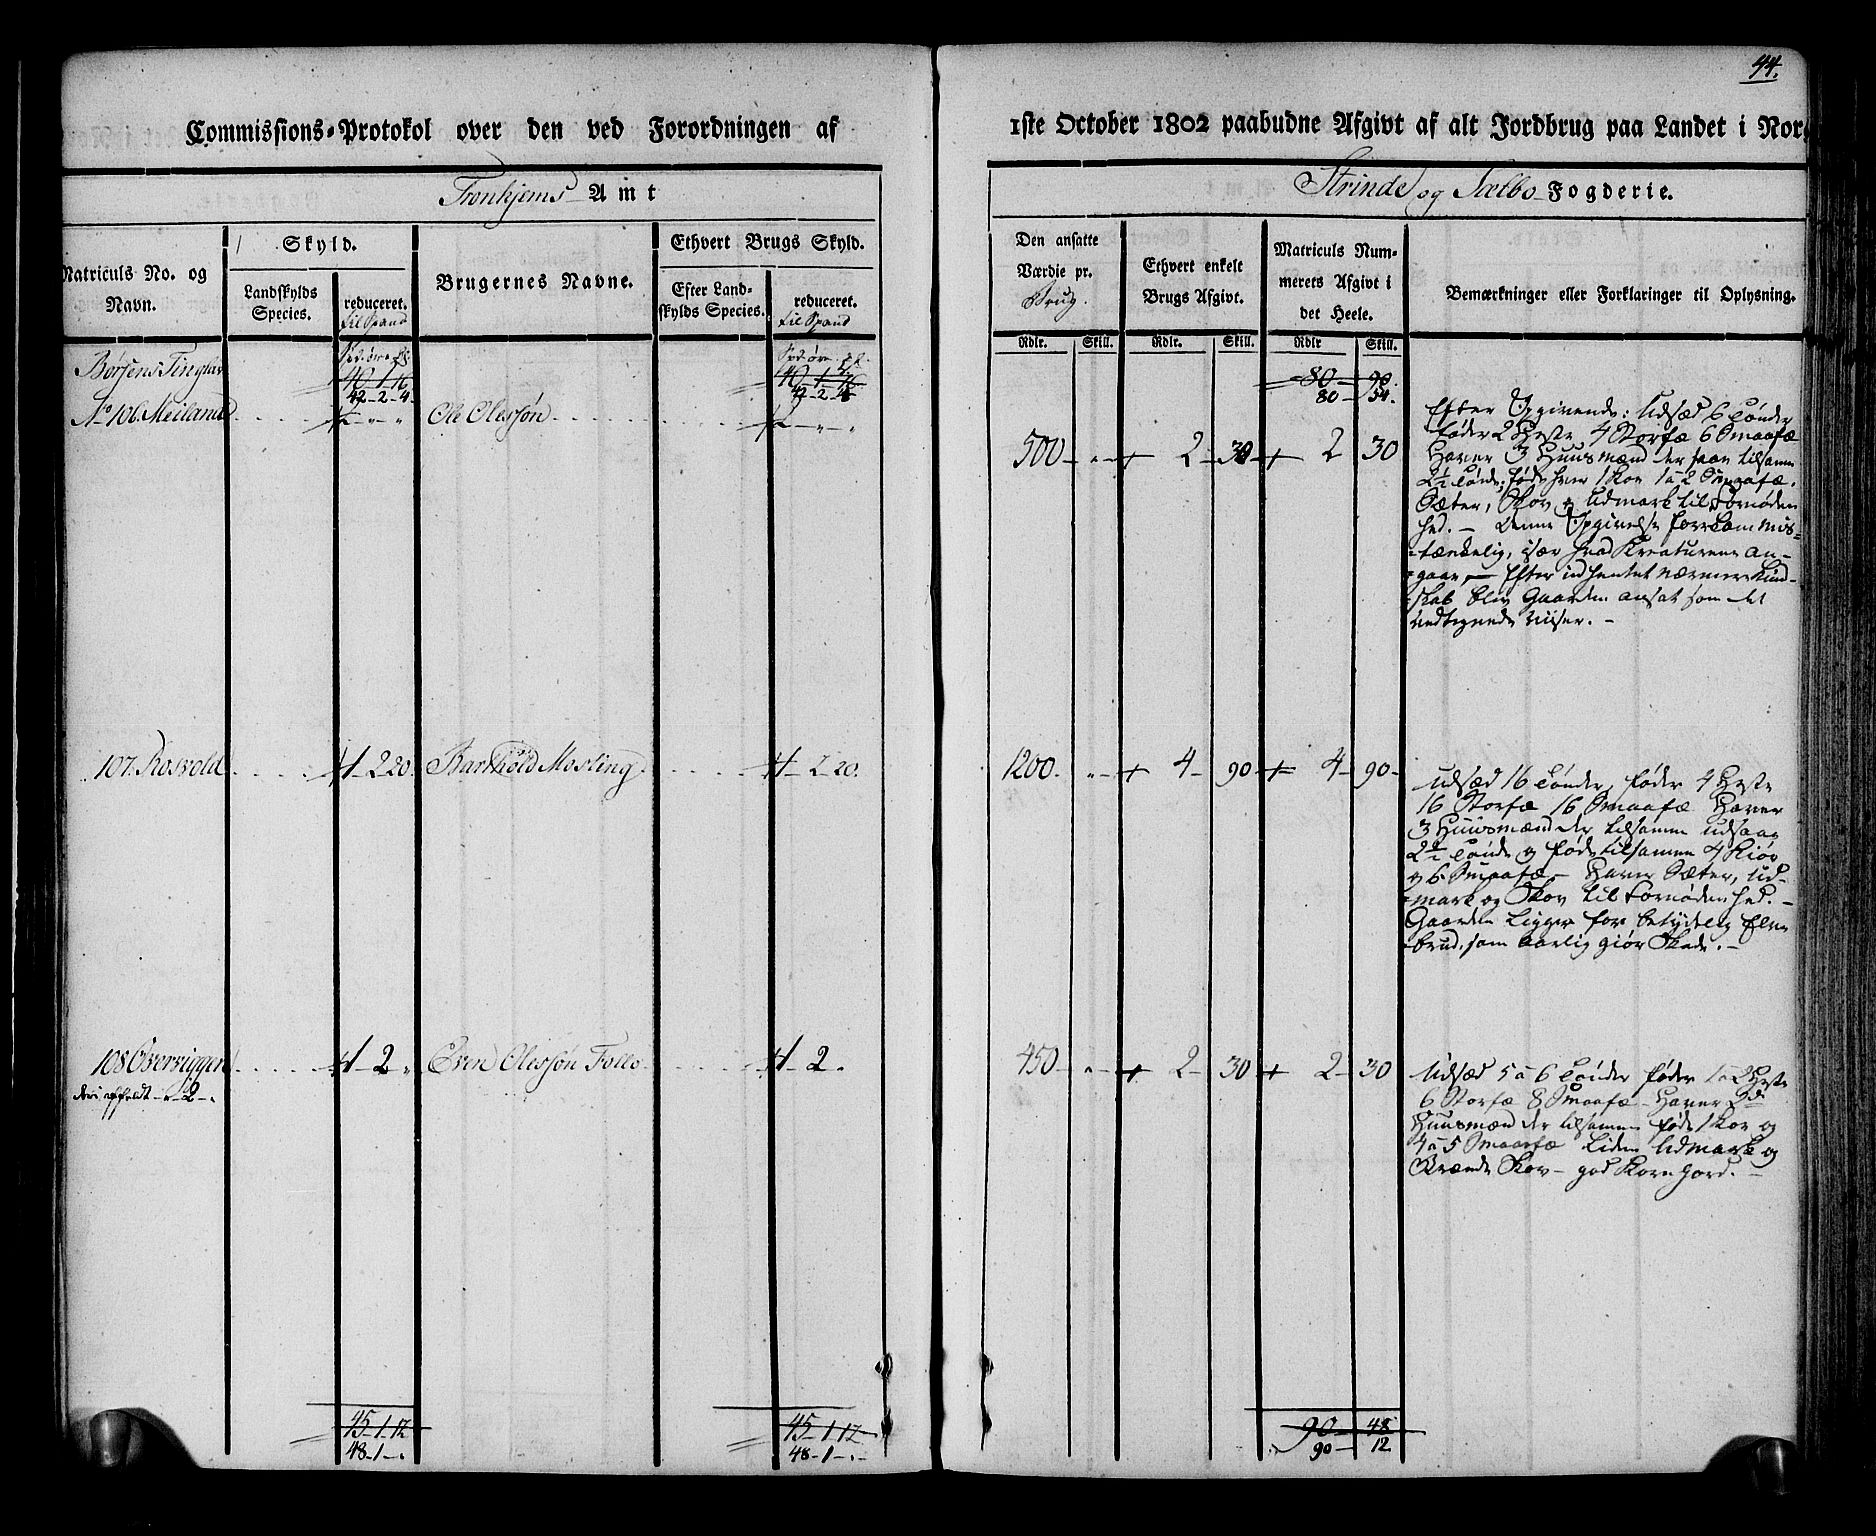 44.
Commissions-Protokol over den ved Forordningen af
1ste October 1802 paabudne Afgivt af alt Jordbrug paa Landet i Nor
Tronhjems Amt
Strinde og Sælbo Fogderie.
Matriculs No. og Navn.
Skyld.
Landskylds Species.
reduceret. til Spand
Brugernes Navne.
Ethvert Brugs Skyld.
Efter Landskylds Species.
reduceret. til Spand
Den ansatte Værdie pr. Brug
Ethvert enkelt Brugs Afgivt.
Matriculs Nummerets Afgivt i det Heele.
Bemærkninger eller Forklaringer til Oplysning.
Rdlr. Skill. Rdlr. Skill. Rdlr Skill.
Børsens Tinglav 40-1-16 40-1-16 80-90
42-2-4 42-2-4 80-54.
No 106. Meiland Ole Olessøn 500 2 30 2 30
Efter Opgivende: Udsæd 6 Tønder
føder 2 Heste 4 Storfæ 6 Smaafæ
Haver 3 Huusmænd der saar tilsamme
2½ Tønde, føde hver 1 Koe 1 a 2 Smaafæ.
Sæter, Skov og Udmark til Fornøden
hed. - Denne Opgivelse forekom mis-
tænkelig, især hvad Kreaturene an-
gaar, - Efter indhentet nærmere Kund-
skab blev Gaarden ansat som det
vedtegnede viiser. -
107. Rosvold 1-2-20. Barthold Mosling 1-2-20. 1200 4-90 4-90
Udsæd 16 Tønder, føder 4 Heste
16 Storfæ 16 Smaafæ Haver
3 Huusmænd der tilsamme udsaae
2½ Tønde og føde tilsamme 4 Kiør
og 6 Smaafæ - Haver Sæter, Ud-
mark og Skov til Fornødenhed. -
Gaarden ligger for betydelig Elve
brud, som aarlig giør Skade. -
108 Overviggen 1-2 Even Olessøn Follo 1-2 450 2-30 2-30
Udsæd 5 a 6 Tønder føder 1 a 2 Heste
6 Storfæ 8 Smaafæ - Haver 2de
Huusmænd der tilsamme føde 1 Koe og
4 a 5 Smaafæ Liden Udmark og
Brænde Skov - god Korn Jord. -
45-1-12 45-1-12 90-48
48-1- 48-1- 90-12